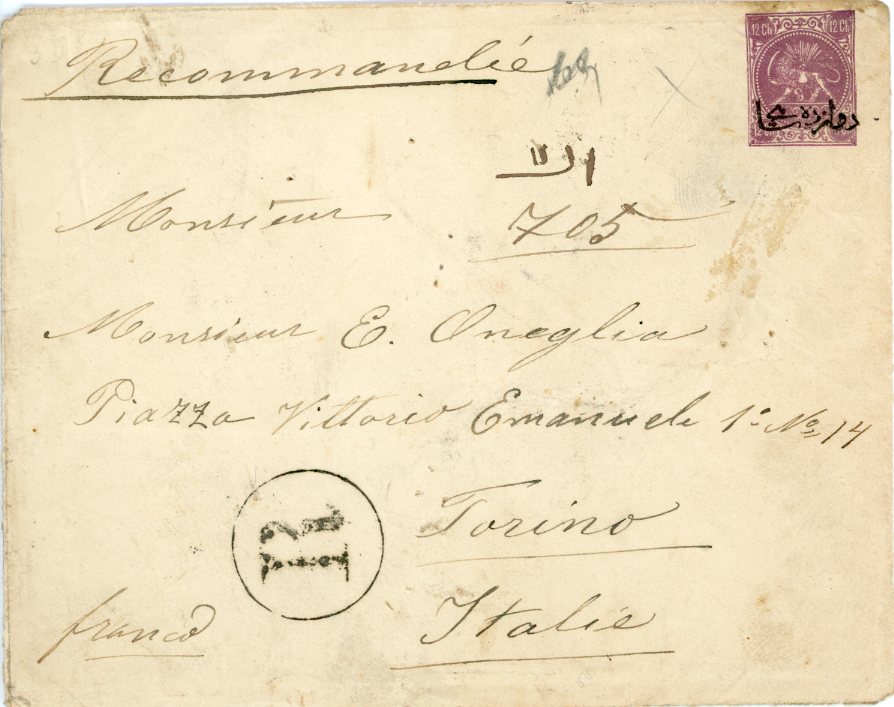 Recommandée
12 Ch 12 Ch
دوازده شاهی
705
Monsieur
Monsieur E. Oneglia
Piazza Vittorio Emanuele 1º No 14
Torino
R
franco
Italie